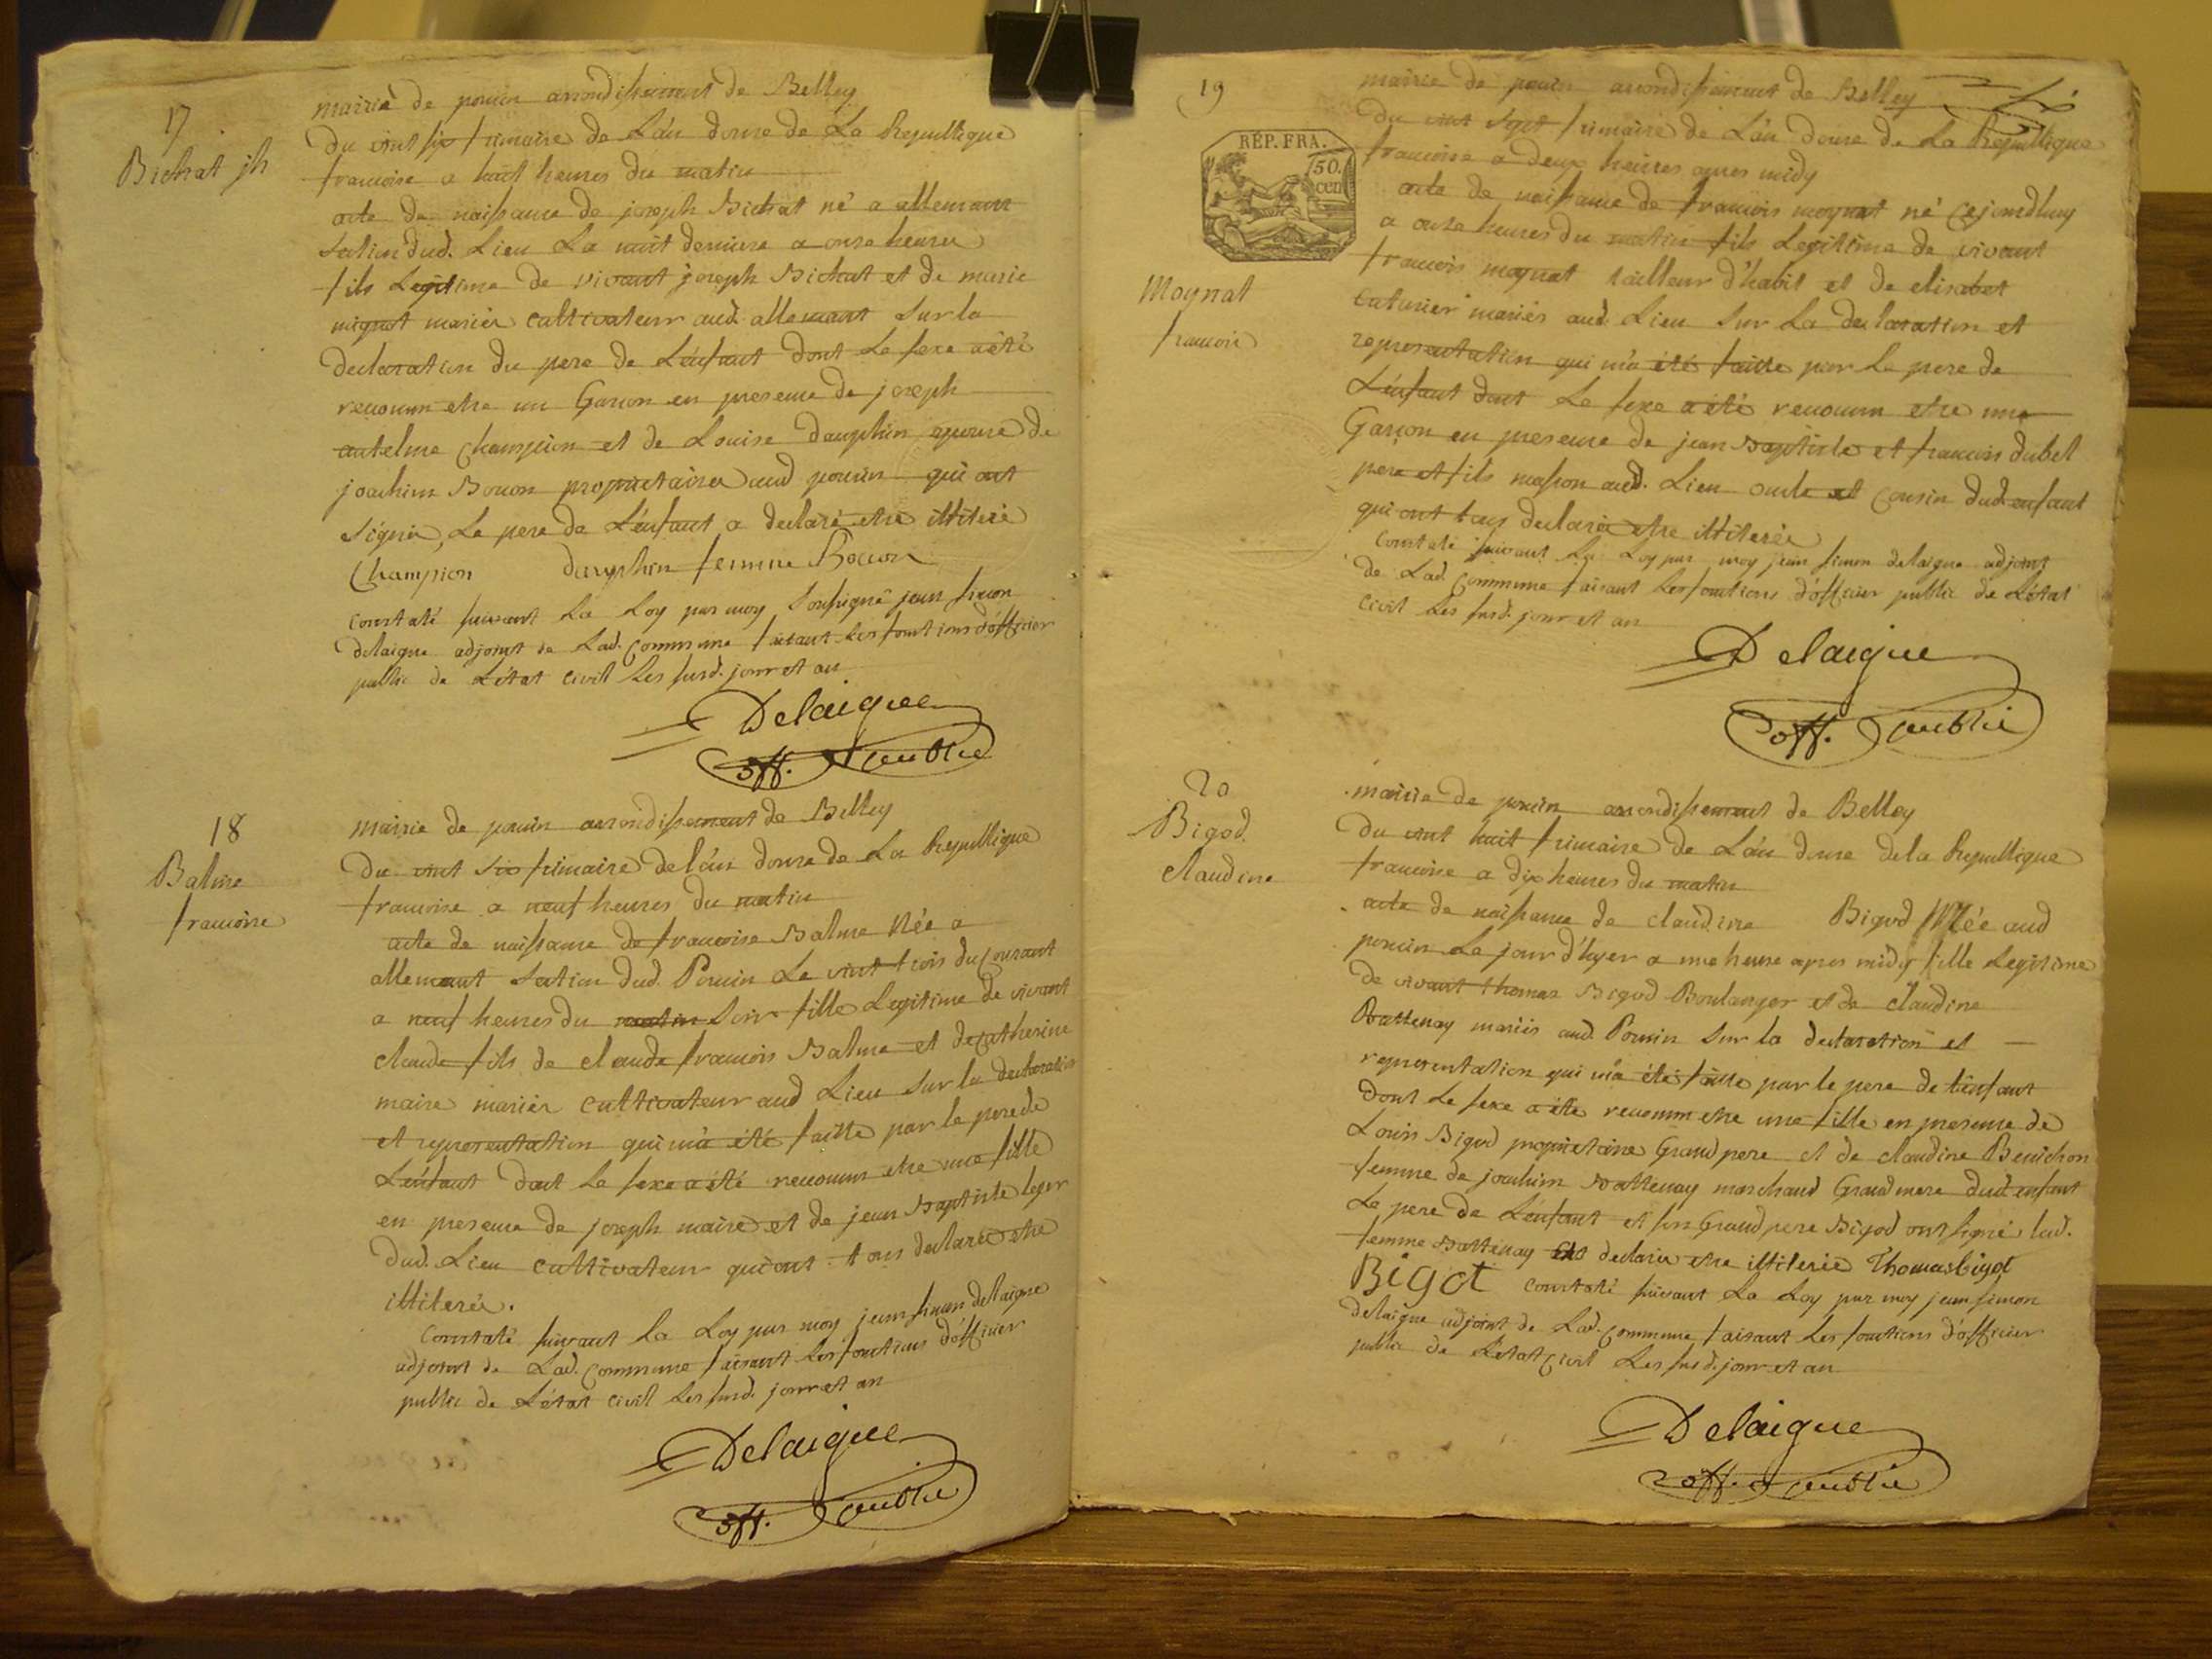 17
Bichat jh
mairie de poncin arrondissement de Belley
du vint six frimaire de L'an douse de La Republique
francoise a huit heures du matin
acte de naissance de joseph Bichat né a allemant
section dud. Lieu La nuit derniere a onse heures
fils Legitime de vivant joseph Bichat et de marie
mignot mariés cultivateur aud. allemant sur la
declaration du pere de L'enfant dont Le sexe a été
reconnu etre un Garcon en presence de joseph
antelme Champion et de Louise dauphin epouse de
joachim Bocon proprietaires aud poncin qui ont
signés, Le pere de L'enfant a declaré etre illiteré
Champion dauphin femme Bocon
Constaté suivant La Loy par moy soussigné jean simon
delaigue adjoint de Lad. Commune faisant Les fonctions d'officier
public de L'état Civil Les susd. jour et an
Delaigue
off. public
18
Balme
francoise
mairie de poncin arrondissement de Belley
du vint six frimaire de l'an douse de La Republique
francoise a neuf heures du matin
acte de naissance de francoise Balme Née a
allemant section dud. Poncin Le vint trois du Courant
a neuf heures du matin soir fille Legitime de vivant
claude fils de claude francois Balme et de catherine
maire mariés cultivateur aud Lieu sur la declaration
et representation qui m'a été faitte par le pere de
L'enfant dont Le sexe a été reconnu etre une fille
en presence de joseph maire et de jean Baptiste leger
dud. Lieu cultivateur qui ont tous declarés etre
illiterés.
Constaté suivant La Loy par moy jean simon delaigue
adjoint de Lad. Commune faisant Les fonctions d'officier
public de L'état Civil Les susd. jour et an
Delaigue
off. public
19
RÉP. FRA.
50.
cen
Moynat
francois
mairie de poncin arrondissement de Belley
du vint sept frimaire de L'an douse de La Republique
francoise a deux heures apres midy
acte de naissance de francois moynat né Cejourdhuy
a onse heures du matin fils Legitime de vivant
francois moynat tailleur d'habit et de elisabet
Caturier mariés aud. Lieu sur La declaration et
representation qui m'a été faitte par Le pere de
L'enfant dont Le sexe a été reconnu etre une
Garçon en presence de jean Baptiste et francois dubet
pere et fils masson aud. Lieu oncle et Cousin dud enfant
qui ont tous declarés etre illiterés
Constaté suivant La Loy par moy jean simon delaigue adjoint
de Lad. Commune faisant Les fonctions d'officier public de L'état
Civil Les susd. jour et an
Delaigue
off. public
20
Bigod
claudine
mairie de poncin arrondissement de Belley
du vint huit frimaire de L'an douse de la Republique
francoise a dix heures du matin
acte de naissance de claudine Bigod Née aud
poncin Le jour d'hyer a une heure apres midy fille Legitime
de vivant thomas Bigod Boulanger et de claudine
Battenay mariés aud. Poncin sur la declaration et
representation qui m'a été faitte par le pere de l'enfant
dont Le sexe a été reconnu etre une fille en presence de
Louis Bigod proprietaire Grand pere et de claudine Benichon
femme de joachim Battenay marchand Grand mere dud enfant
Le pere de L'enfant et son Grand pere Bigod ont signé Lad.
femme Battenay declarée etre illiterée Thomas bigot
Bigot Constaté suivant La Loy par moy jean simon
delaigue adjoint de Lad. Commune faisant Les fonctions d'officier
public de L'état Civil Les susd. jour et an
Delaigue
off. public